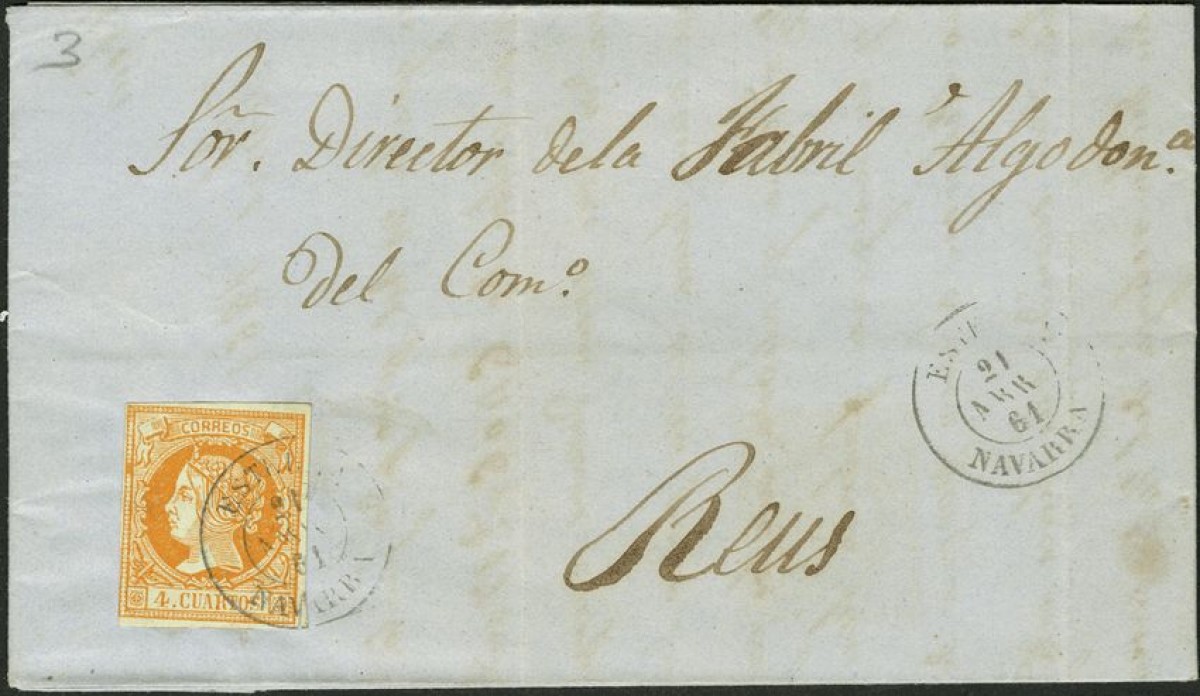 3
Sor. Director dela Fabril Algodon.a
del Com.o
Reus
21
ABR
61
NAVARRA
CORREOS
4. CUARTOS
NAVARRA